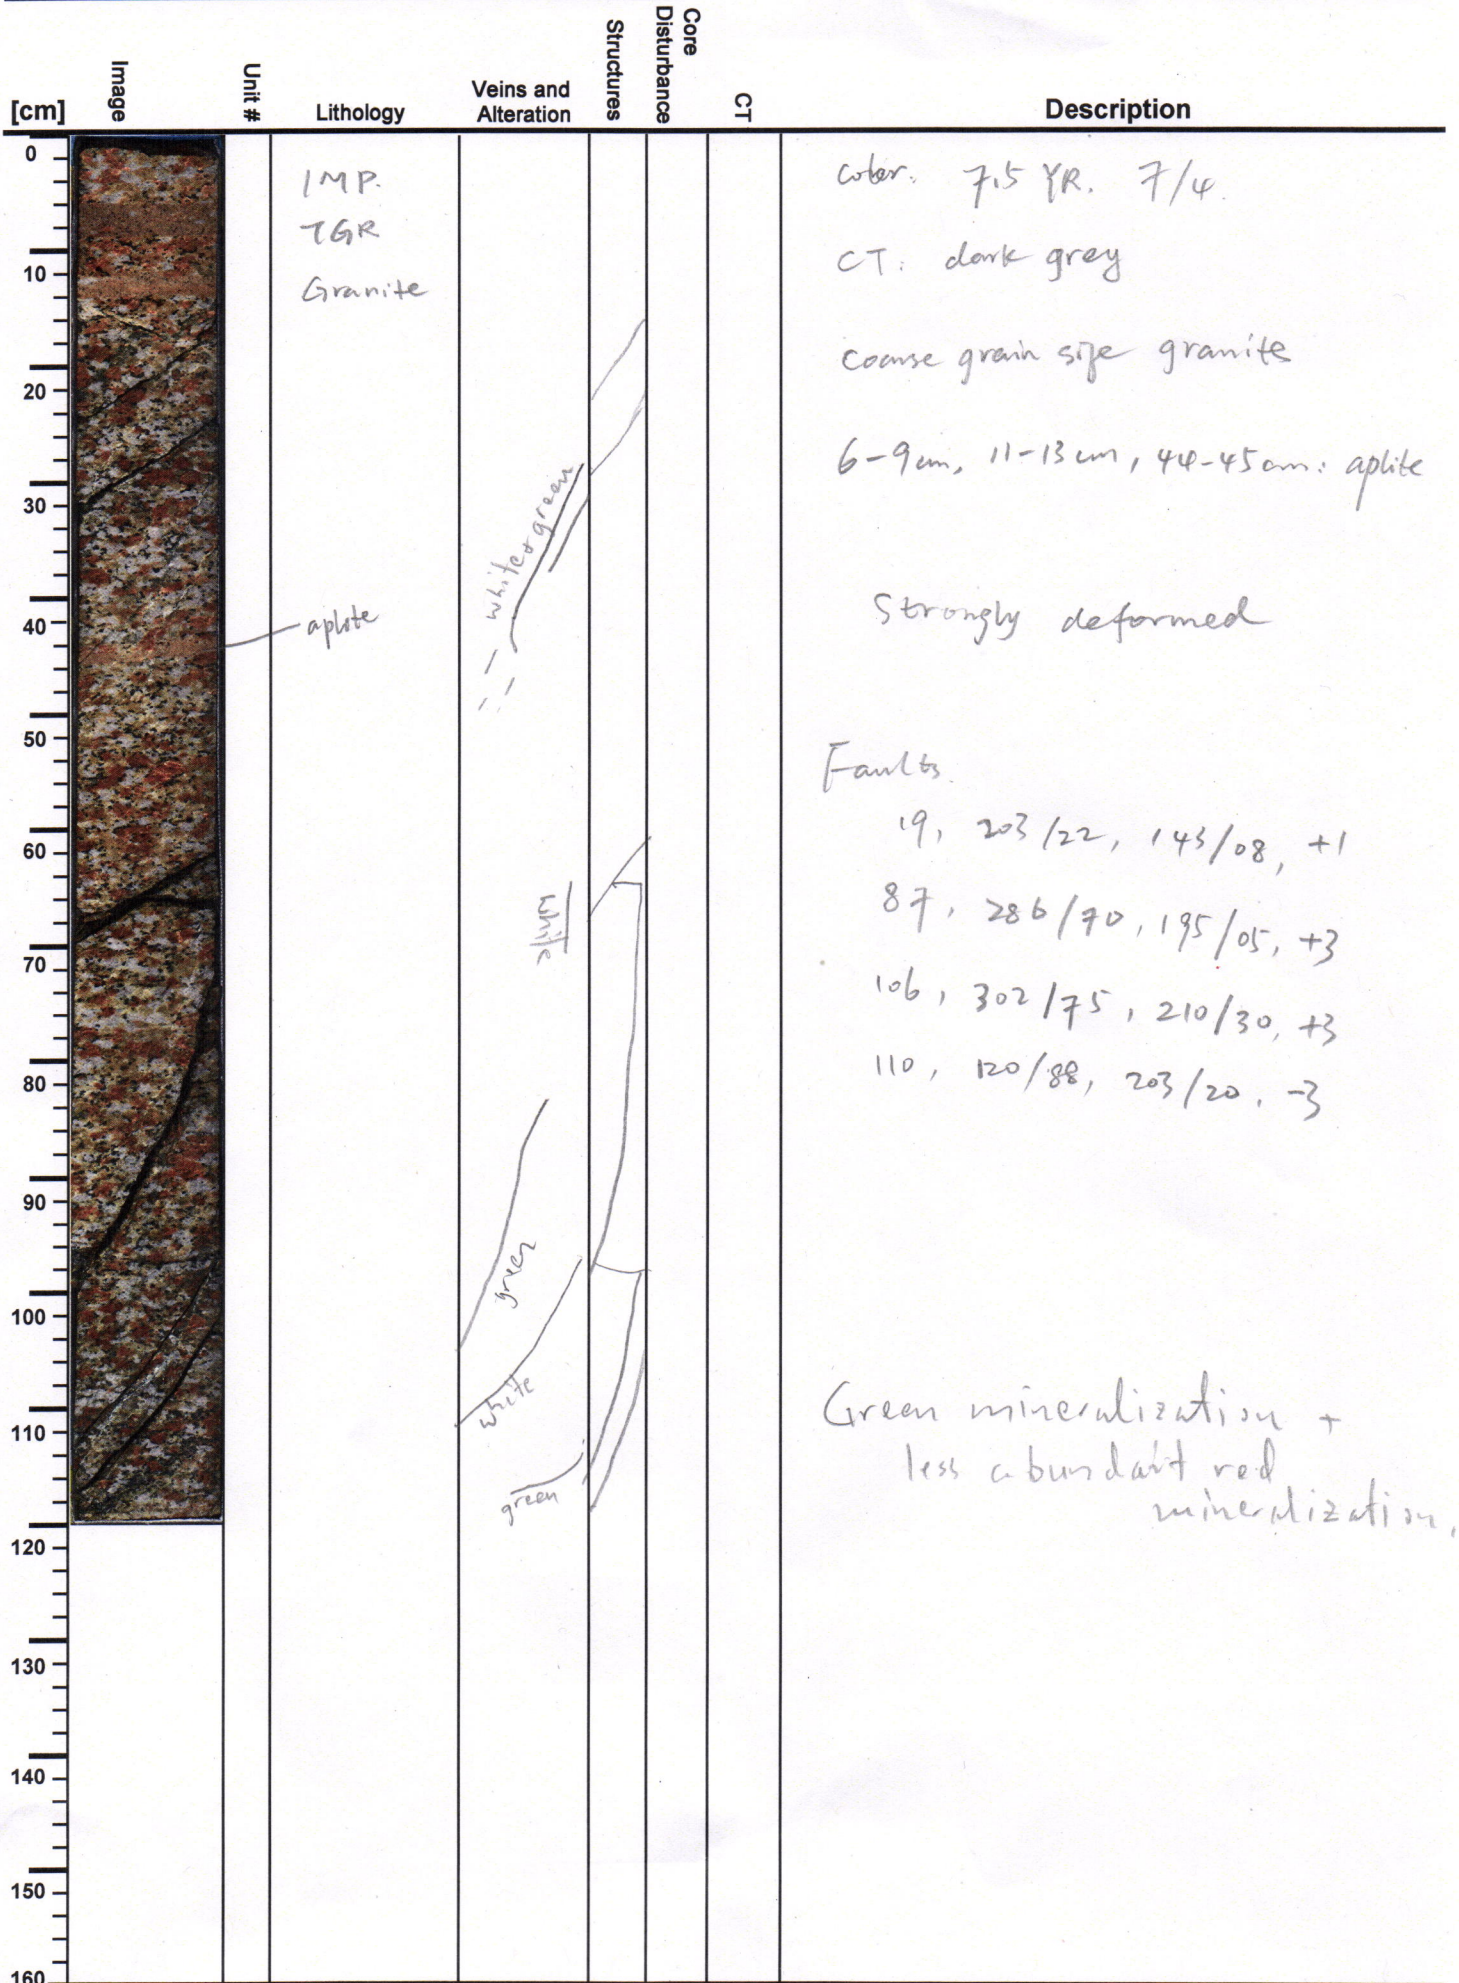 [cm]
Image
Unit #
Lithology
Veins and
Alteration
Structures
Core
Disturbance
CT
Description
0
10
20
30
40
50
60
70
80
90
100
110
120
130
140
150
160
IMP.
TGR
Granite
aplite
white + green
white
green
white
green
Color: 7.5 YR. 7/4.
CT: dark grey
coarse grain size granite
6-9 cm, 11-13 cm, 44-45 cm: aplite
Strongly deformed
Faults.
19, 203/22, 143/08, +1
87, 286/70, 195/05, +3
106, 302/75, 210/30, +3
110, 120/88, 203/20, -3
Green mineralization +
less abundant red
mineralization.